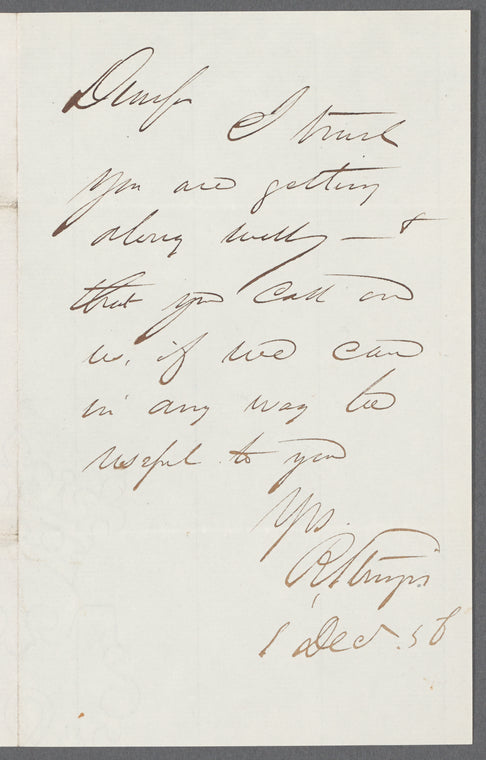 Dear Sir
I trust
you are getting
along well, — &
that you call on
us, if we can
in any way be
useful to you
Yrs.
1 Dec. 56